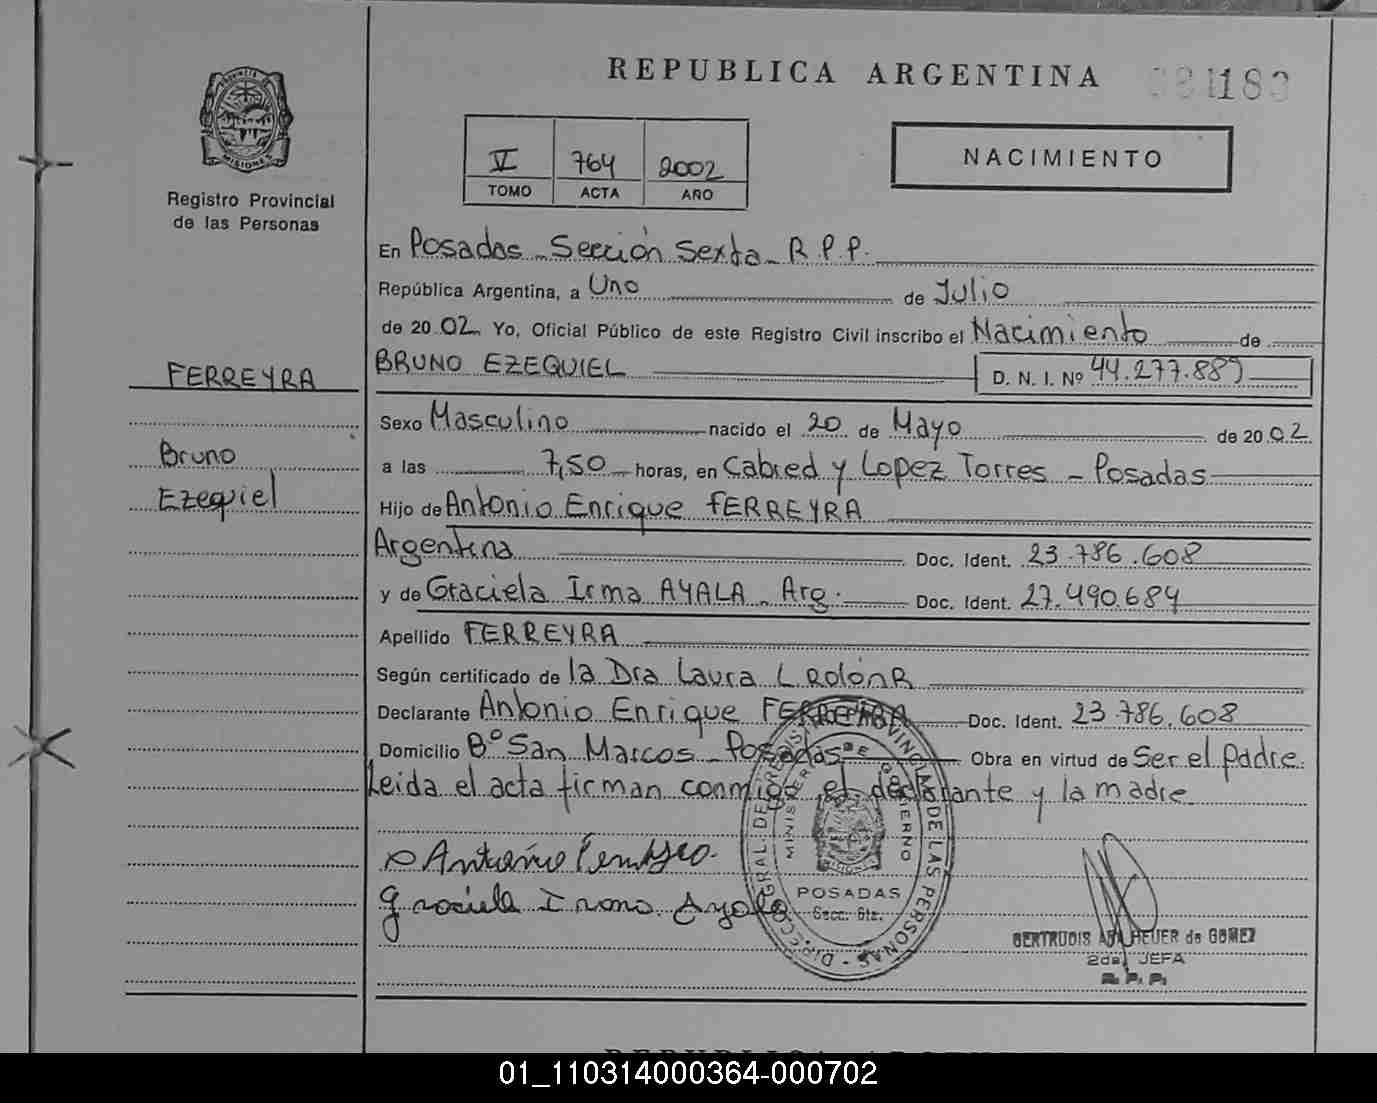 REPUBLICA ARGENTINA
PROVINCIA DE MISIONES
Registro Provincial
de las Personas
V 764 2002
TOMO ACTA AÑO
NACIMIENTO
En Posadas - Sección Sexta - R.P.P.
República Argentina, a Uno de Julio
de 2002 Yo, Oficial Público de este Registro Civil inscribo el Nacimiento de
BRUNO EZEQUIEL D. N. I. Nº 44.277.889
FERREYRA
Bruno
Ezequiel
Sexo Masculino nacido el 20 de Mayo de 2002
a las 7,50 horas, en Cabred y Lopez Torres - Posadas
Hijo de Antonio Enrique FERREYRA
Argentina Doc. Ident. 23.786.608
y de Graciela Irma AYALA - Arg. Doc. Ident. 27.490.684
Apellido FERREYRA
Según certificado de la Dra Laura L. Rolón R
Declarante Antonio Enrique FERREYRA Doc. Ident. 23.786.608
Domicilio Bº San Marcos - Posadas Obra en virtud de Ser el padre.
Leida el acta firman conmigo el declarante y la madre
Antonio
Graciela Irma Ayala
DIRECC. GRAL. DE REGISTRO PROVINCIAL DE LAS PERSONAS
MINISTERIO DE GOBIERNO
POSADAS
Secc. 6ta.
GERTRUDIS HEUER de GOMEZ
2da. JEFA
R. P. P.
01_110314000364-000702